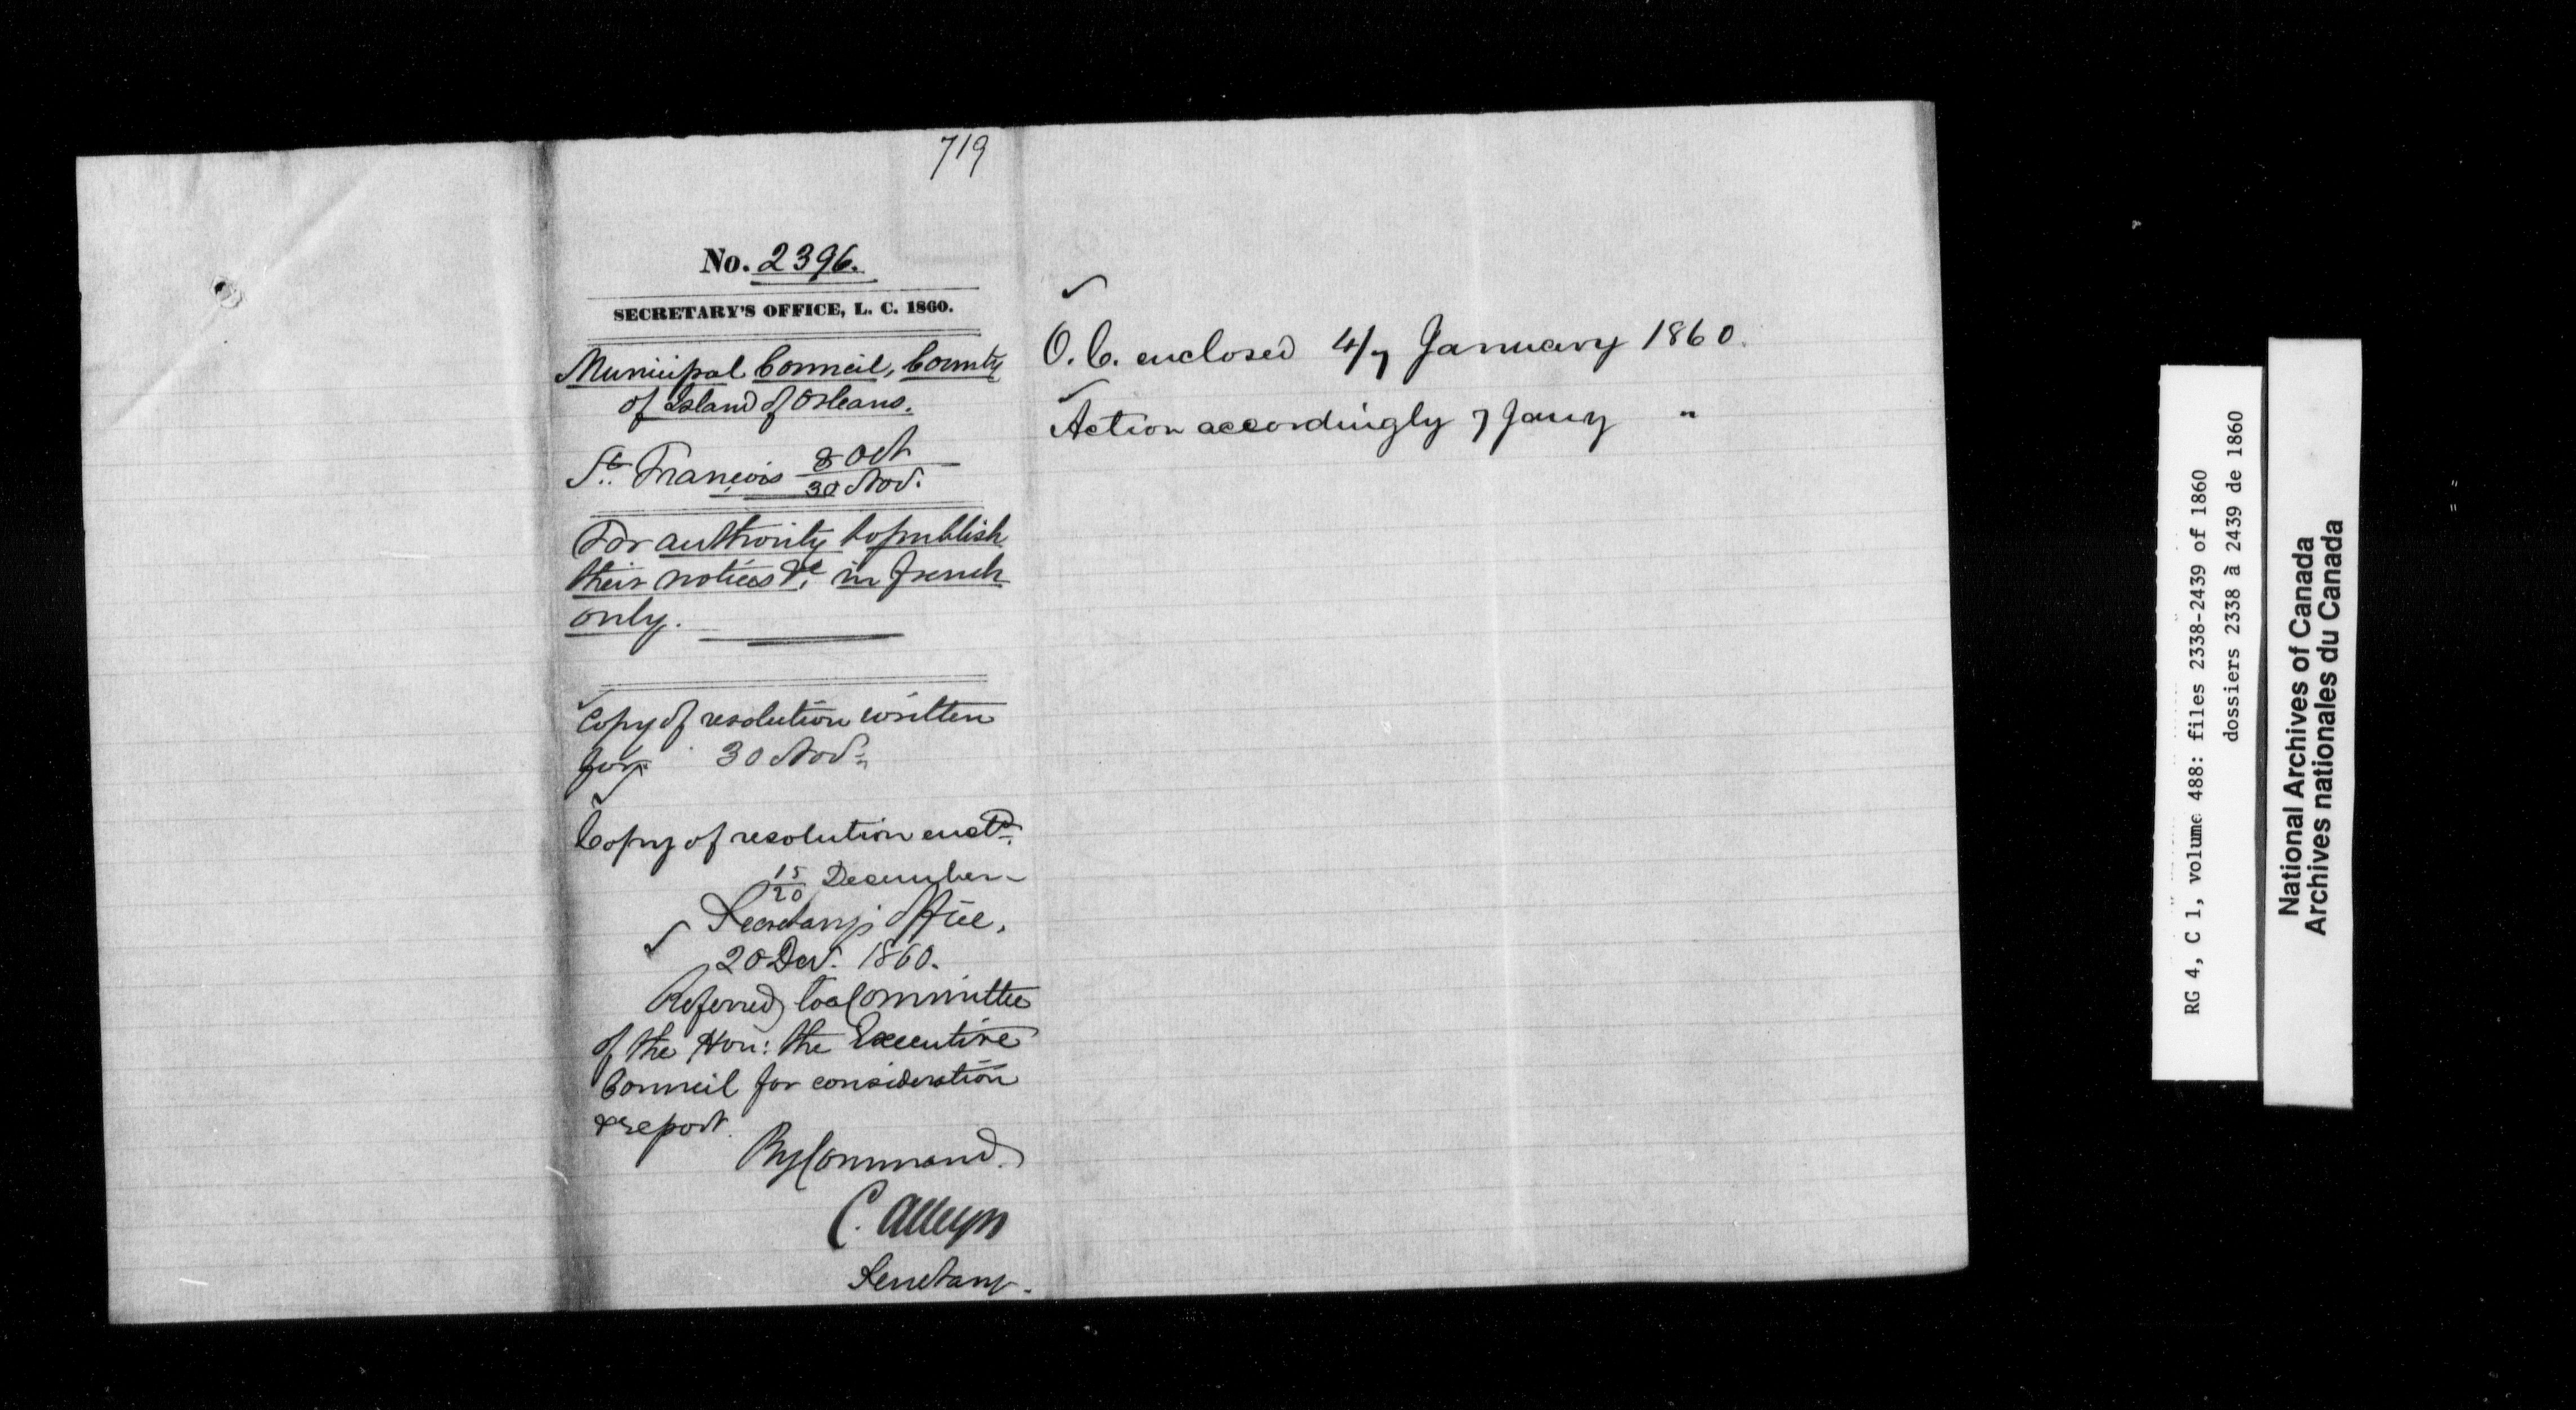 719
No. 2396.
SECRETARY'S OFFICE, L. C. 1860.
Municipal Council, County
of Island of Orleans.
St. François 8 Oct
30 Nov.
For authority to publish
their notices &c. in french
only.
Copy of resolution written
for 30 Nov.
Copy of resolution encld.
15
20 December
Secretary's Office,
20 Decr. 1860.
Referred to a Committee
of the Hon: the Executive
Council for consideration
& report.
By Command.
C. Alleyn
Secretary.
O. C. enclosed 4/7 January 1860.
Action accordingly 7 Jany "
RG 4, C 1, volume 488: files 2338-2439 of 1860
dossiers 2338 à 2439 de 1860
National Archives of Canada
Archives nationales du Canada